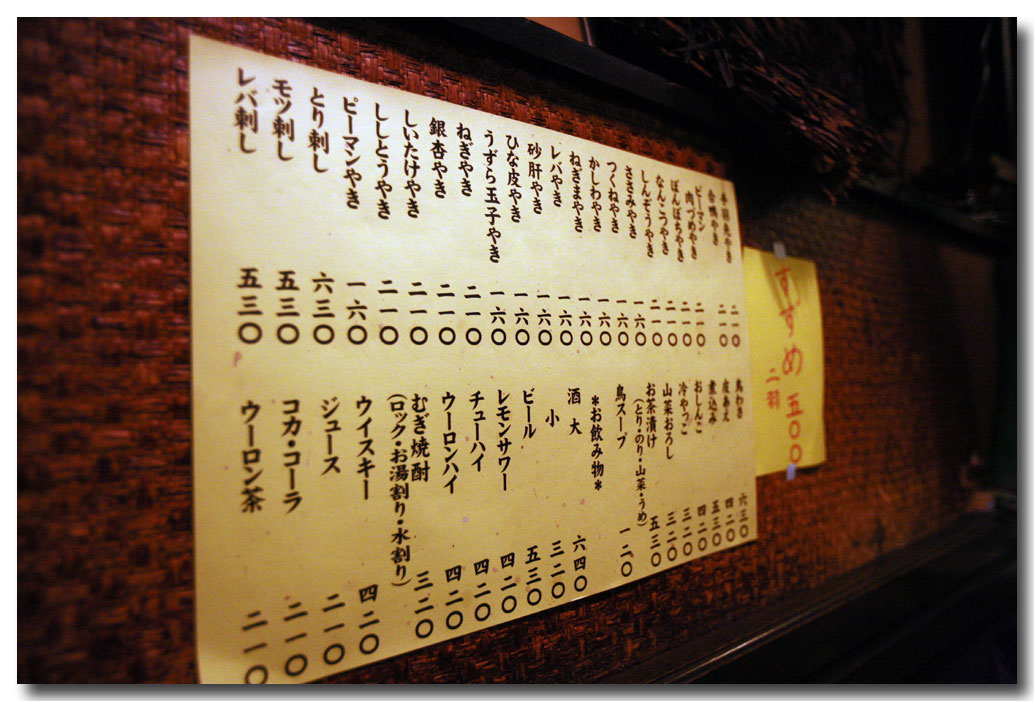 すずめ 五〇〇
二羽
手羽先やき 二一〇
合鴨やき 二一〇
ピーマン
肉づめやき 二一〇
ぼんぼちやき 二一〇
なんこつやき 二一〇
しんぞうやき 二一〇
ささみやき 一六〇
つくねやき 一六〇
かしわやき 一六〇
ねぎまやき 一六〇
レバやき 一六〇
砂肝やき 一六〇
ひな皮やき 一六〇
うずら玉子やき 一六〇
ねぎやき 二一〇
銀杏やき 二一〇
しいたけやき 二一〇
ししとうやき 二一〇
ピーマンやき 一六〇
とり刺し 六三〇
モツ刺し 五三〇
レバ刺し 五三〇
鳥わさ 六三〇
皮あえ 四二〇
煮込み 五三〇
おしんこ 四二〇
冷やっこ 三二〇
山菜おろし 三二〇
お茶漬け 五三〇
(とり・のり・山菜・うめ)
鳥スープ 一二〇
*お飲み物*
酒 大 六四〇
小 三二〇
ビール 五三〇
レモンサワー 四二〇
チューハイ 四二〇
ウーロンハイ 四二〇
むぎ焼酎 三二〇
(ロック・お湯割り・水割り)
ウイスキー 四二〇
ジュース 二一〇
コカ・コーラ 二一〇
ウーロン茶 二一〇